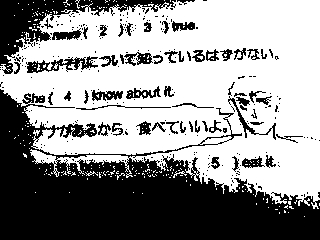 The news ( 2 ) ( 3 ) true.
3) 彼女がそれについて知っているはずがない。
She ( 4 ) know about it.
ナナがあるから、食べていいよ。
is a banana here. You ( 5 ) eat it.